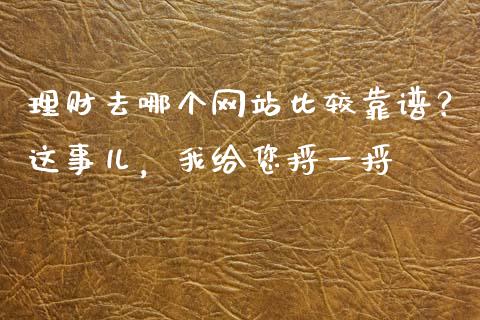 理财去哪个网站比较靠谱？
这事儿，我给您捋一捋